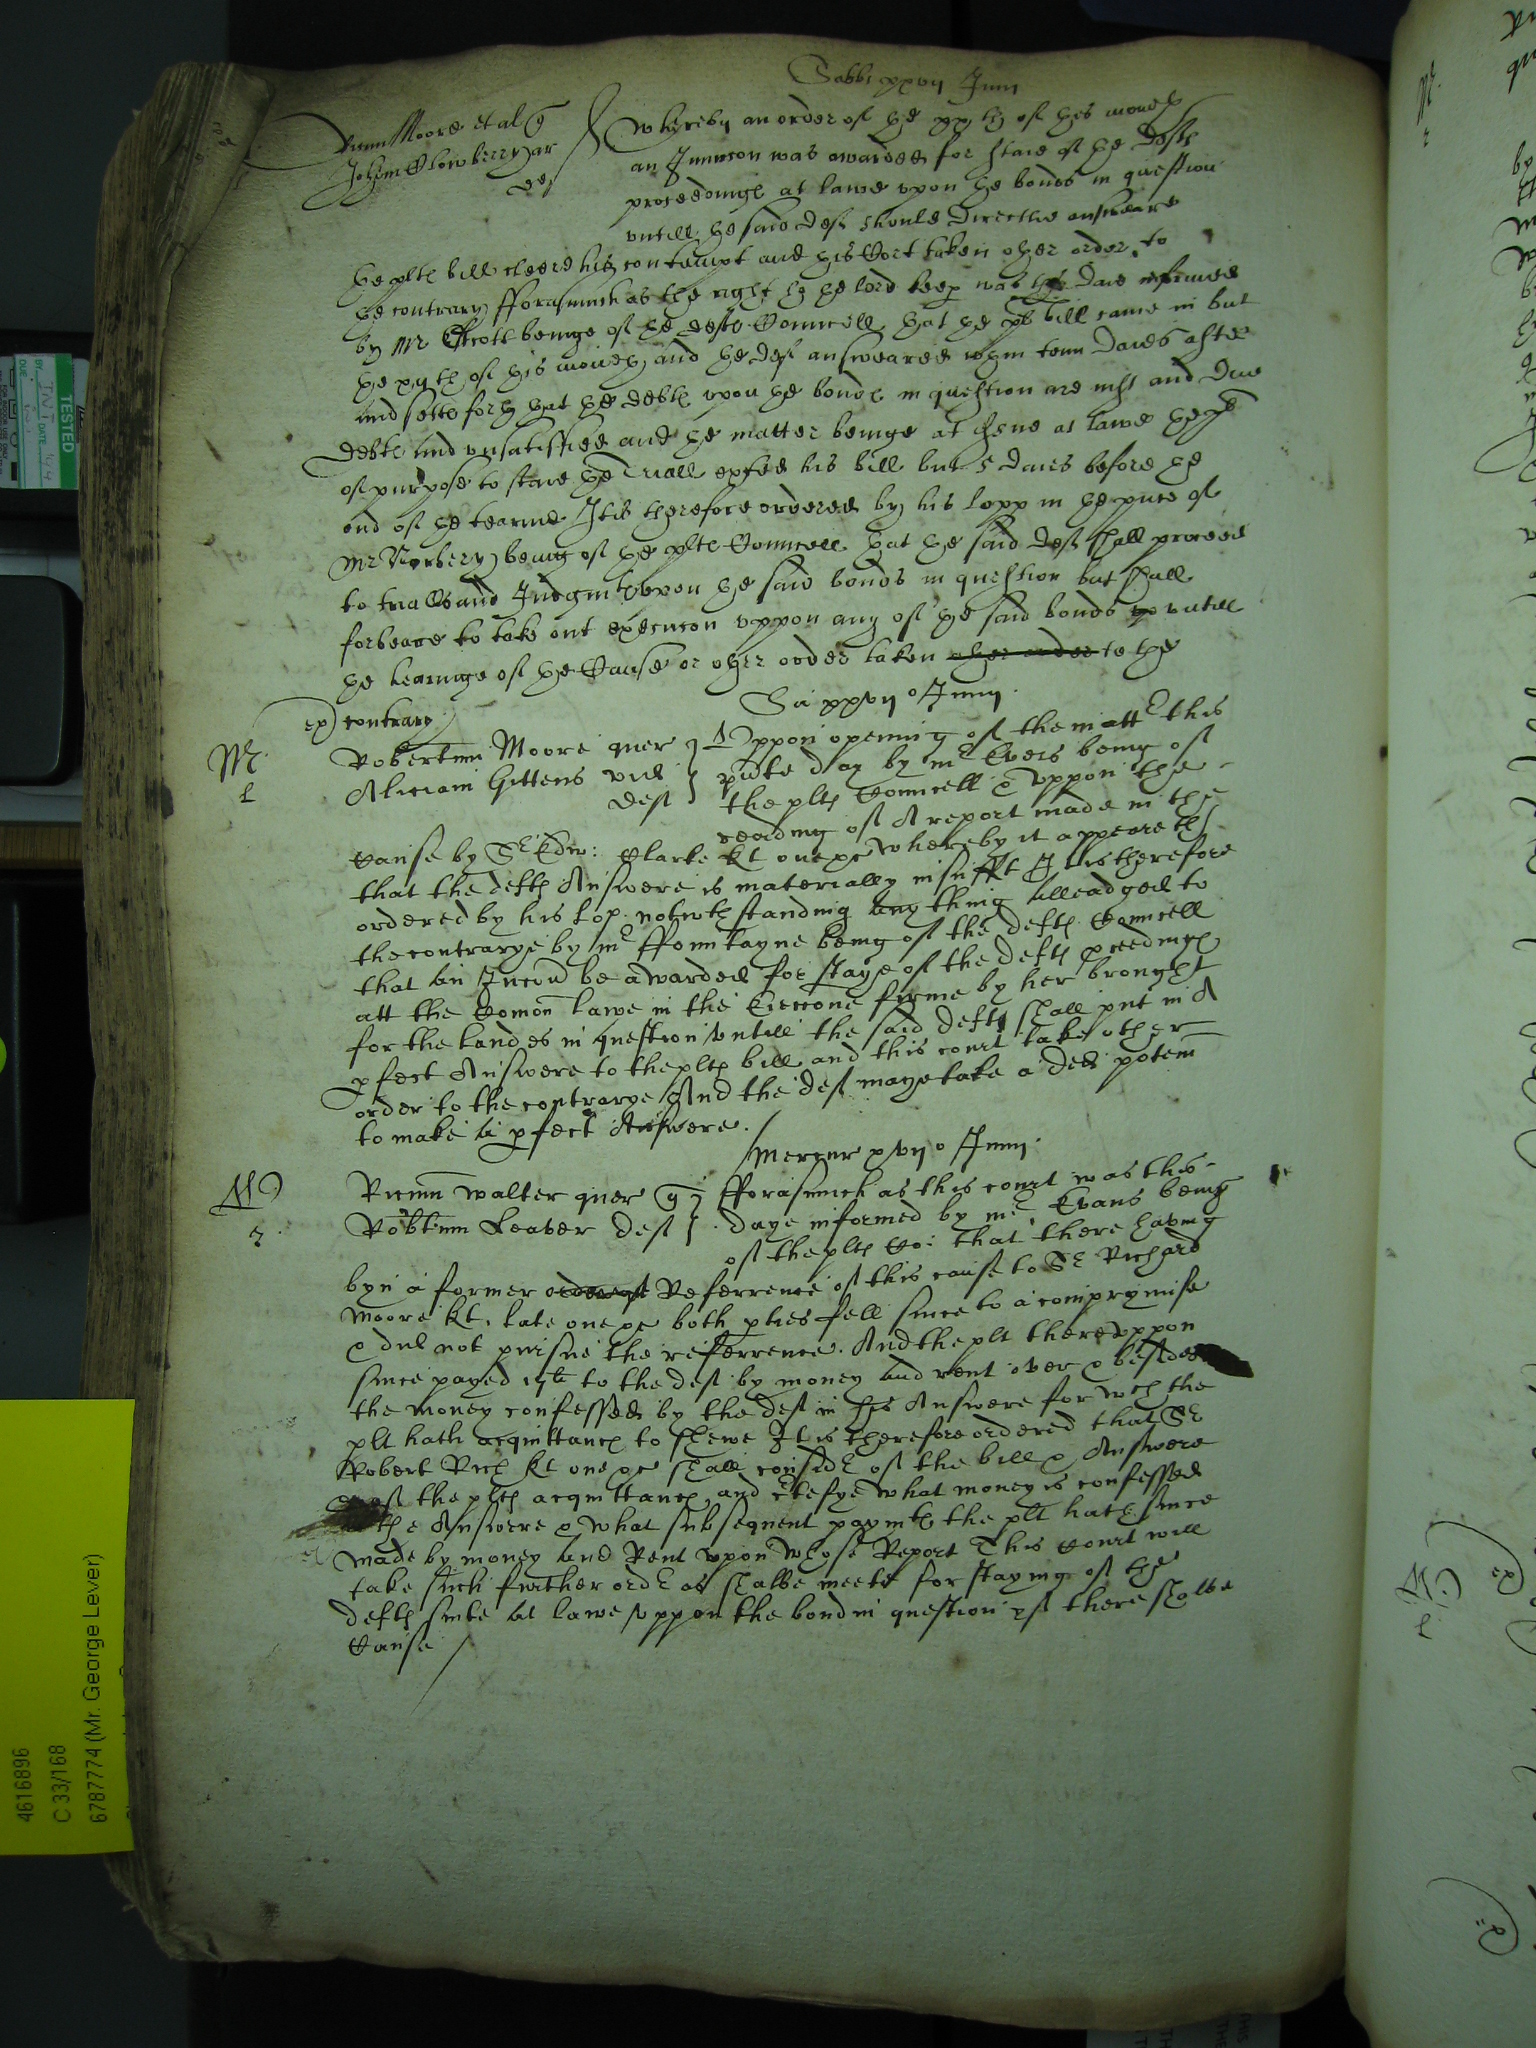 Sabbi xxvii Junii
Moore et al
Johem Slowberry ar
def
whereby an order of the xx th of this moneth
an Iniuncon was awarded for staie of the defts
proceedings at lawe vpon the bonds in question
vntill the said deft should directlie answeare
the plts bill cleere his contempt and this Cort taken other order to
the contrary fforasmuch as the right ho the lord keep was this daie informed
by Mr Estcott beinge of the defts Councell that the plts bill came in but
the xvth of this moneth and the deft answeared wthin tenn daies after
and setts forth that the debts vpon the bonds in question are iust and due
debts and vnsatisfied and the matter beinge at issue at lawe the plt
of purpose to staie the Triall exhibited his bill but 5 daies before the
end of the tearme It is therefore ordered by his lopp in the pnce of
Mr Norbery being of the plts Councell that the said deft shall proceed
to triall and Iudgmt vpon the said bonds in question but shall
forbeare to take out execucon vppon any of the said bonds vntill
the hearinge of the Cause or other order taken other order to the
contrary
ex
Sa xxvii o Junii
Mr
Robertum Moore quer
Aliciam Gittens vid
deft
Vppon opening of the mattr this
pnte day by mr Evers being of
the plts Councell & vppon the
reading of A report made in the
Cause by Sr Edw: Clarke kt one &c whereby it appeareth
that the defts Answere is materially insufft It is therefore
ordered by his lop notwthstanding any thing alleadged to
the contrarye by mr ffountayne being of the defts Councell
that an Incon be awarded for staye of the defts pceedings
att the Comon lawe in the Eieccone firme by her brought
for the landes in question vntill the said deft shall put in A
pfect Answere to the plts bill and this court take other
order to the contrarye And the deft maye take a ded potem
to make a pfect Answere.
Mercur xvii o Junii
Ricum Walter quer
Robtum Leaver deft
fforasmuch as this court was this
daye informed by mr Evans being
of the plts Co: that there having
byn a former order of Referrence of this cause to Sr Richard
Moore kt. late one &c both pties fell since to a comprymise
& did not pursue the referrence. And the plt therevppon
since payed 17li to the deft by money and rent over & besides
the money confessed by the deft in his Answere for wch the
plt hath acquittance to shewe It is therefore ordered that Sr
Robert Rich kt one &c shall considr of the bill & Answere
& of the plts acquittance and certefye what money is confessed
the Answere & what subsequent paymts the plt hath since
made by money and Rent vpon whose Report This Court will
take such further ordr as shalbe meete for staying of the
defts suite at lawe vppon the bond in question yf there shalbe
Cause
TESTED
BY
DATE
DUE
4616896
C 33/168
6787774 (Mr. George Lever)